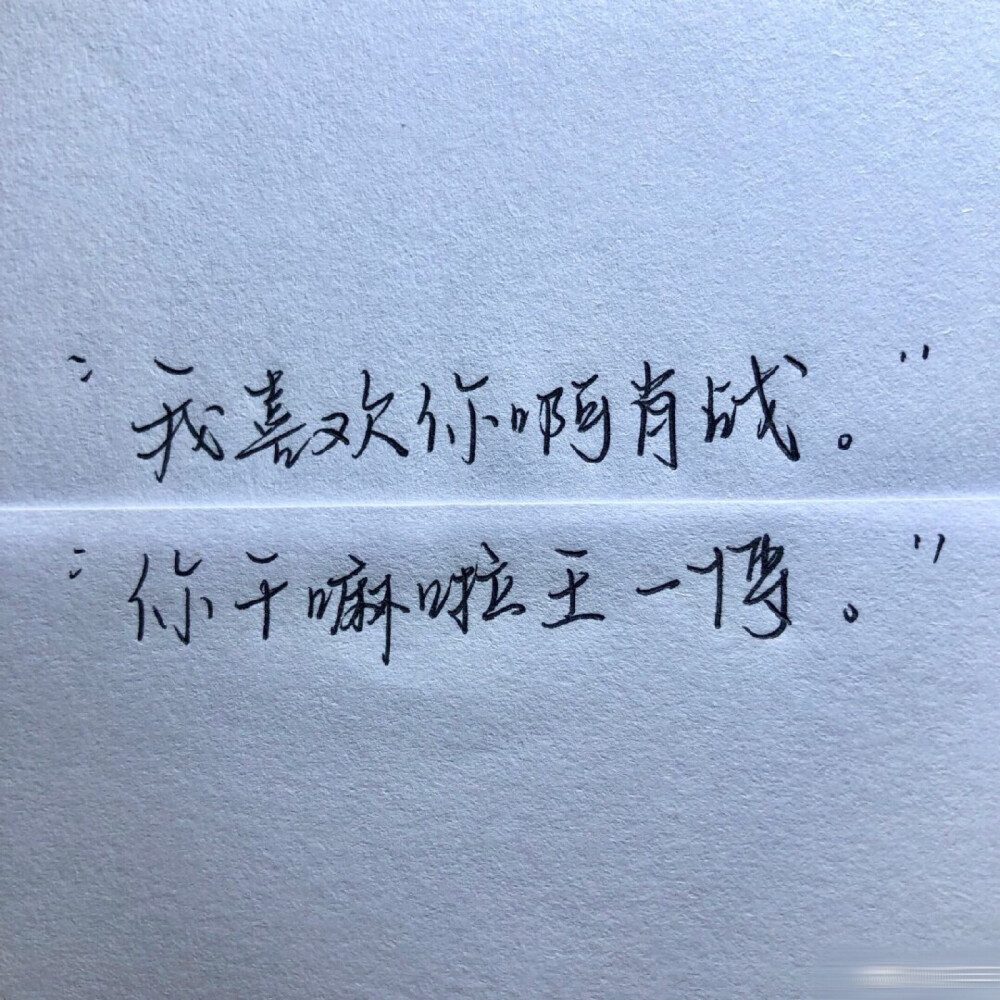 “我喜欢你啊肖战。”
“你干嘛啦王一博。”